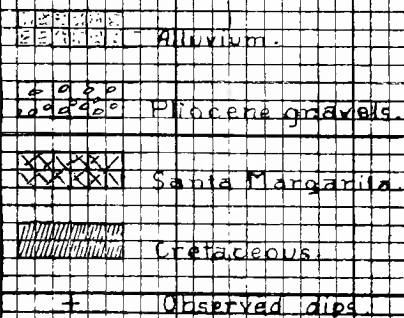 Alluvium.
Pliocene gravels.
Santa Margarita.
Cretaceous.
Observed dips.